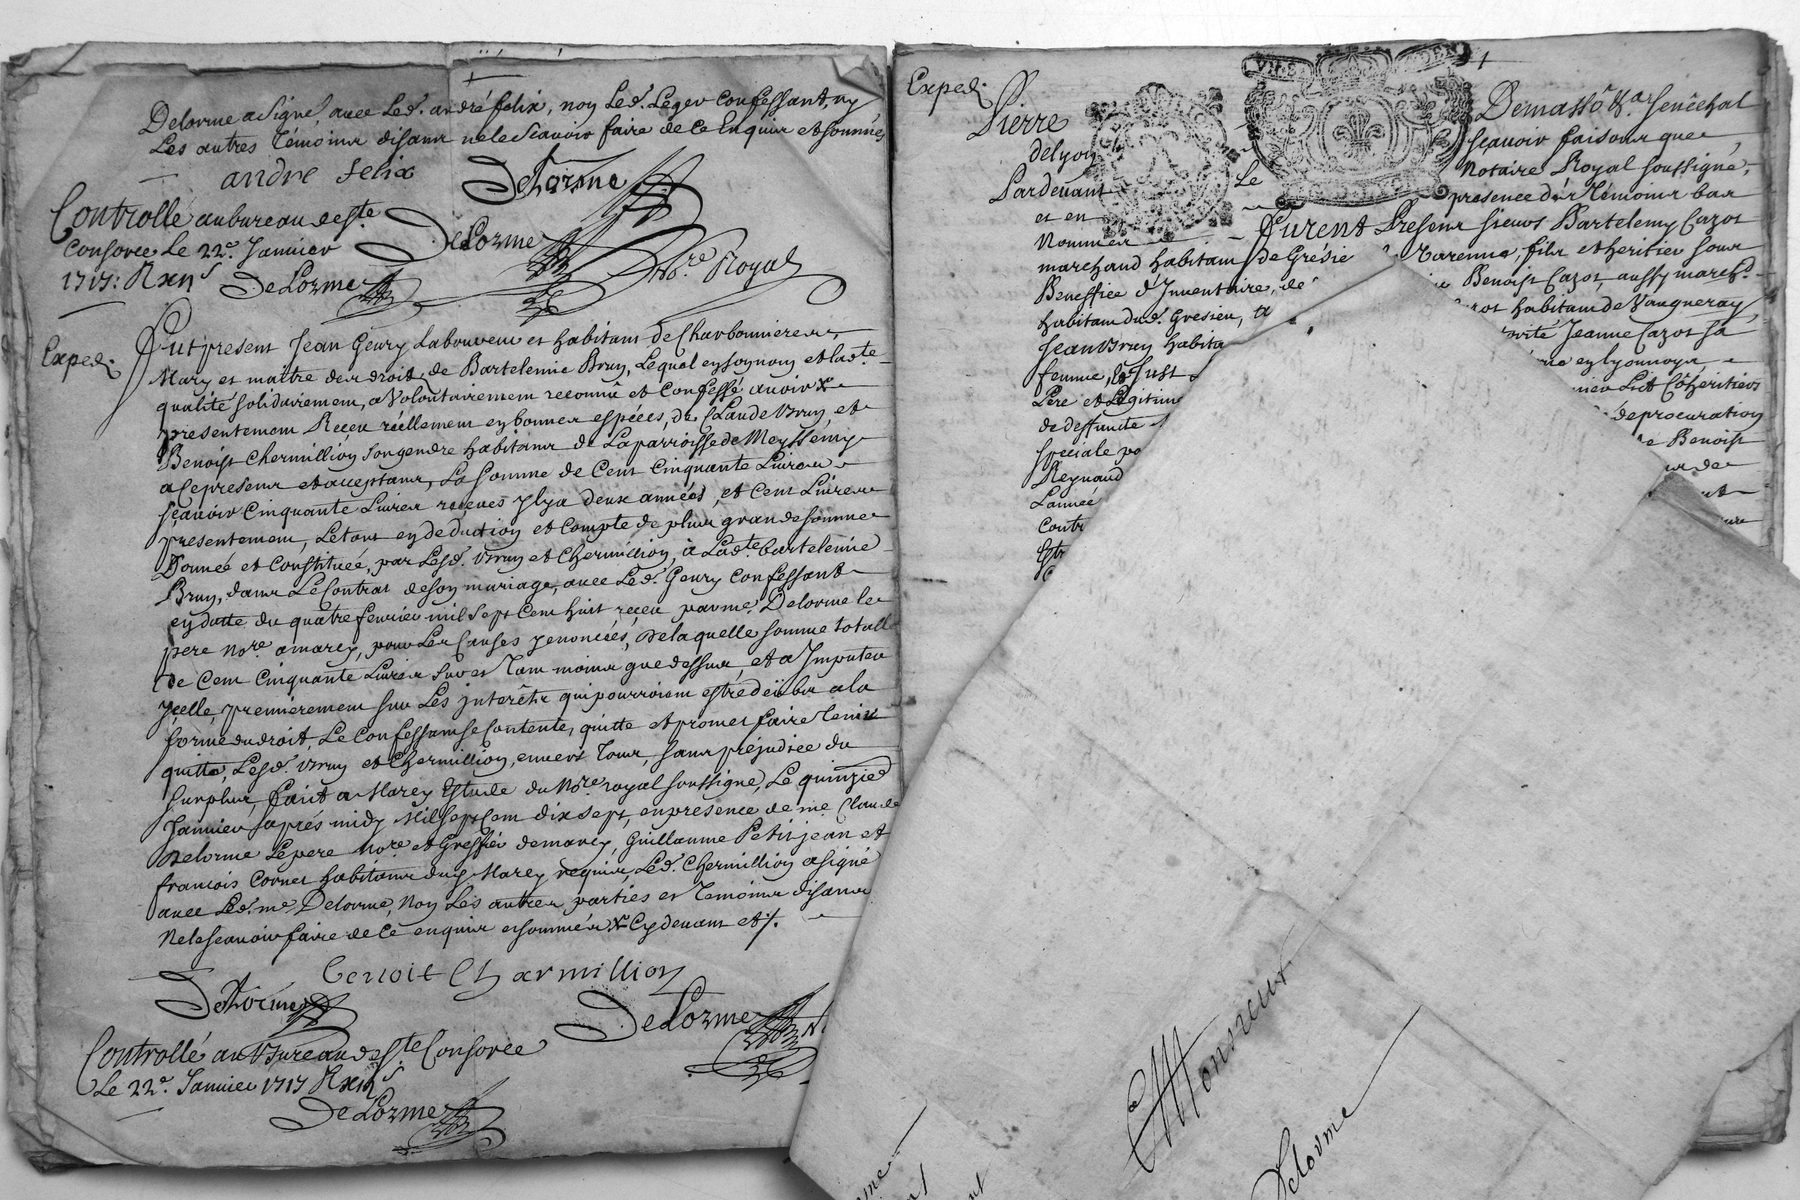 Delorme a Signé, avec Led. andré felix, non Led. Leger Confessant, ny
Les autres Témoins disant ne le Scavoir faire de Ce Enquis et sommés
andre felix
DeLorme
Controllé au bureau de Ste
Consorce Le 22e. Janvier
1717: R xii s
DeLorme
DeLorme
No.re Royal
DeLorme
Exped.
Fut present Jean Geury Laboureur et habitant de Charbonnieres,
Mary et maitre des droits, de Bartelemie Brun, Lequel en son nom et lad.te
qualité solidairement, a Volontairement reconnu et Confessé avoir
presentement Receu réellement en bonnes espéces, de Claude Brun, et
Benoist Chermillion son gendre habitans de La parroisse de Meyssemy
a Ce present et acceptant, La Somme de Cent Cinquante Livres
sçavoir Cinquante Livres reçeues Il y a deux années, et Cent Livres
presentement, Le tout en deduction et Compte de plus grande somme
Donnée et Constituée, par Lesd. Brun et Chermillion, à Lad.te bartelemie
Brun, dans Le Contrat de son mariage, avec Led. Geury Confessant
en datte du quatre fevrier mil Sept Cent huit réceu par me. Delorme Le
pere No.re a marcy, pour Les Causes y enoncées, de laquelle somme totalle
de Cent Cinquante Livres Sur et Tant moins que dessus, et a Imputer
Icelle premierement sur Les interêts qui pourroient estre deübs a la
forme du droit, Le Confessant se Contente, quitte et promet faire tenir
quitte, Lesd. Brun et Chermillion, envers Tous, sans préjudice du
surplus, fait a Marcy Estude du No.re royal soussigné, Le quinzie
Janvier, après midy Mil Sept Cent dix sept, en presence de me Claude
Delorme Le pere No.re et Greffier de marcy, Guillaume Petitjean et
francois Cornet habitans dud. Marcy requis, Led. Chermillion a signé
avec Led. me. Delorme, Non Les autres parties et Temoins disans
Ne le sçavoir faire de Cé enquis et sommés Cy devant et
benoit Charmillion
DeLorme
DeLorme
Controllé au Bureau de Ste Consorce
Le 22e. Janvier 1717 R xii s
DeLorme
Exped.
Pierre
Demasso
Senéchal
de Lyon
Sçavoir faisons que
Pardevant
Le
Notaire Royal soussigné,
et en
presence des Témoins bas
Nommés
Furent Presens sieurs Bartelemy Cazot
marchand habitant de Grésie
Varenne, fils et heritier sous
Beneffice d'Inventaire, de
Benoist Cazot, aussy march.
habitant dud. Gresieu,
habitant de Vaugneray
Jean Brun habita
Jeanne Cazot sa
femme, & Just
en lyonnois,
Pere et Legitime
Coheritiers
de deffuncte
de procuration
speciale
Benoist
Reynaud
Lannée
Contr
Monsieur
Delorme